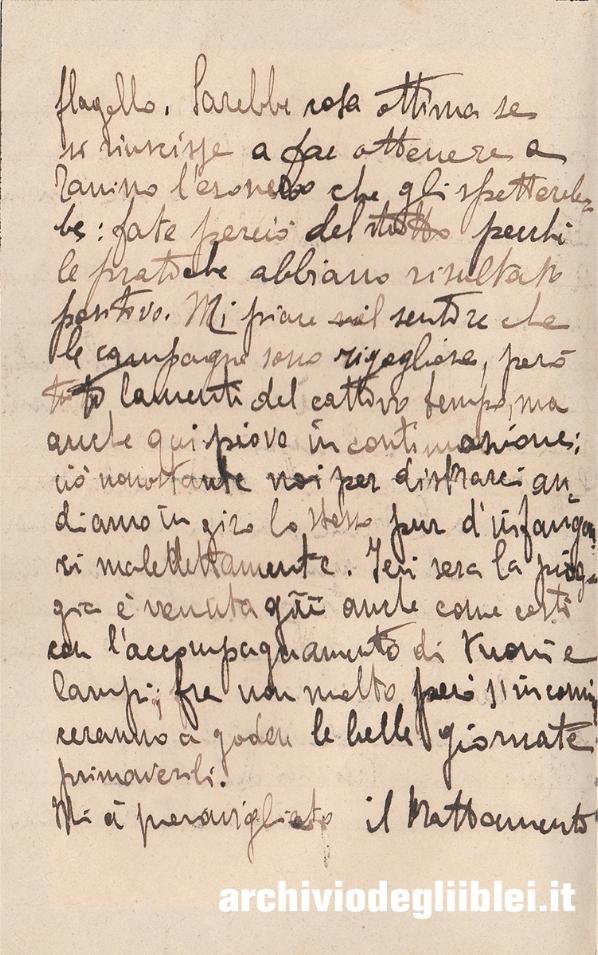 flagello. Sarebbe cosa ottima se
si riuscisse a far ottenere a
l'esonero che gli spettereb-
be: fate perciò del tutto perchè
le pratiche abbiano risultato
positivo. Mi piace nel sentire che
le campagne sono rigogliose, però
lamenti del cattivo tempo, ma
anche qui piove in continuazione;
ciò nonostante noi per distrarci an-
diamo in giro lo stesso pur d'infangar-
ci maledettamente. Ieri sera la piog-
gia è venuta giù anche come costì
con l'accompagnamento di tuoni e
lampi; fra non molto però s'incomin
ceranno a godere le belle giornate
primaverili.
Mi à meravigliato il trattamento
archiviodegliiblei.it